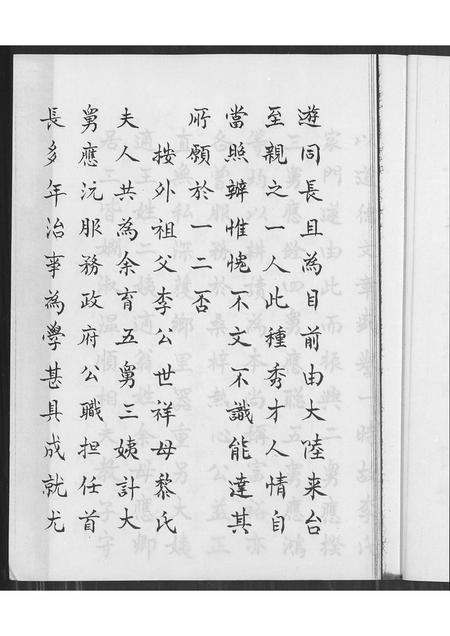 遊同長且為目前由大陸来台
至親之一人此種秀才人情自
當照辦惟愧不文不識能達其
所願於一二否
按外祖父李公世祥母黎氏
夫人共為余育五舅三姨計大
舅應沅服務政府公職担任首
長多年治事為學甚具成就尤